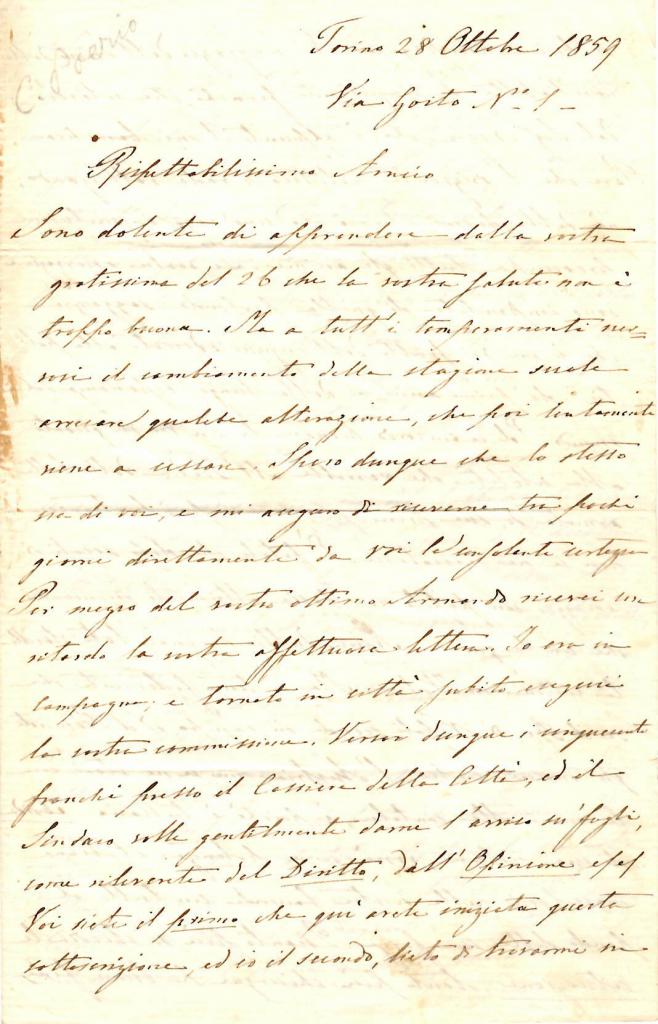 C. Poerio
Torino 28 Ottobre 1859
Via Goito No. 1 -
Rispettabilissimo Amico
Sono dolente di apprendere dalla vostra
gratissima del 26 che la vostra salute non è
troppo buona. Ma a tutt'i temperamenti ner=
vosi il cambiamento della stagione suole
arrecare qualche alterazione, che poi lentamente
viene a cessare. Spero dunque che lo stesso
sia di voi, e mi auguro di riceverne tra pochi
giorni direttamente da voi la consolante certezza
Per mezzo del vostro ottimo Armando ricevei con
ritardo la vostra affettuosa lettera. Io era in
campagna; e tornato in città subito eseguii
la vostra commissione. Versai dunque i cinquecento
franchi presso il Cassiere della Città, ed il
Sindaco volle gentilmente darne l'avviso su' fogli,
come rileverete del Diritto, dall'Opinione
Voi siete il primo che qui avete iniziata questa
sottoscrizione, ed io il secondo, lieto di trovarmi in